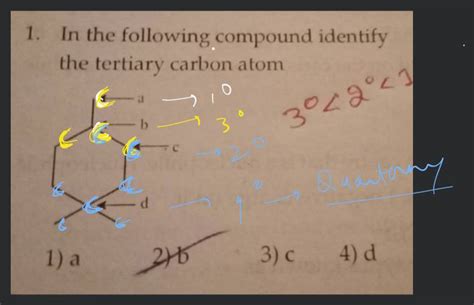 1. In the following compound identify
the tertiary carbon atom
a → 1°
b → 3°
c → 2°
d → 4° → Quartorny
3° < 2° < 1
1) a 2) b 3) c 4) d